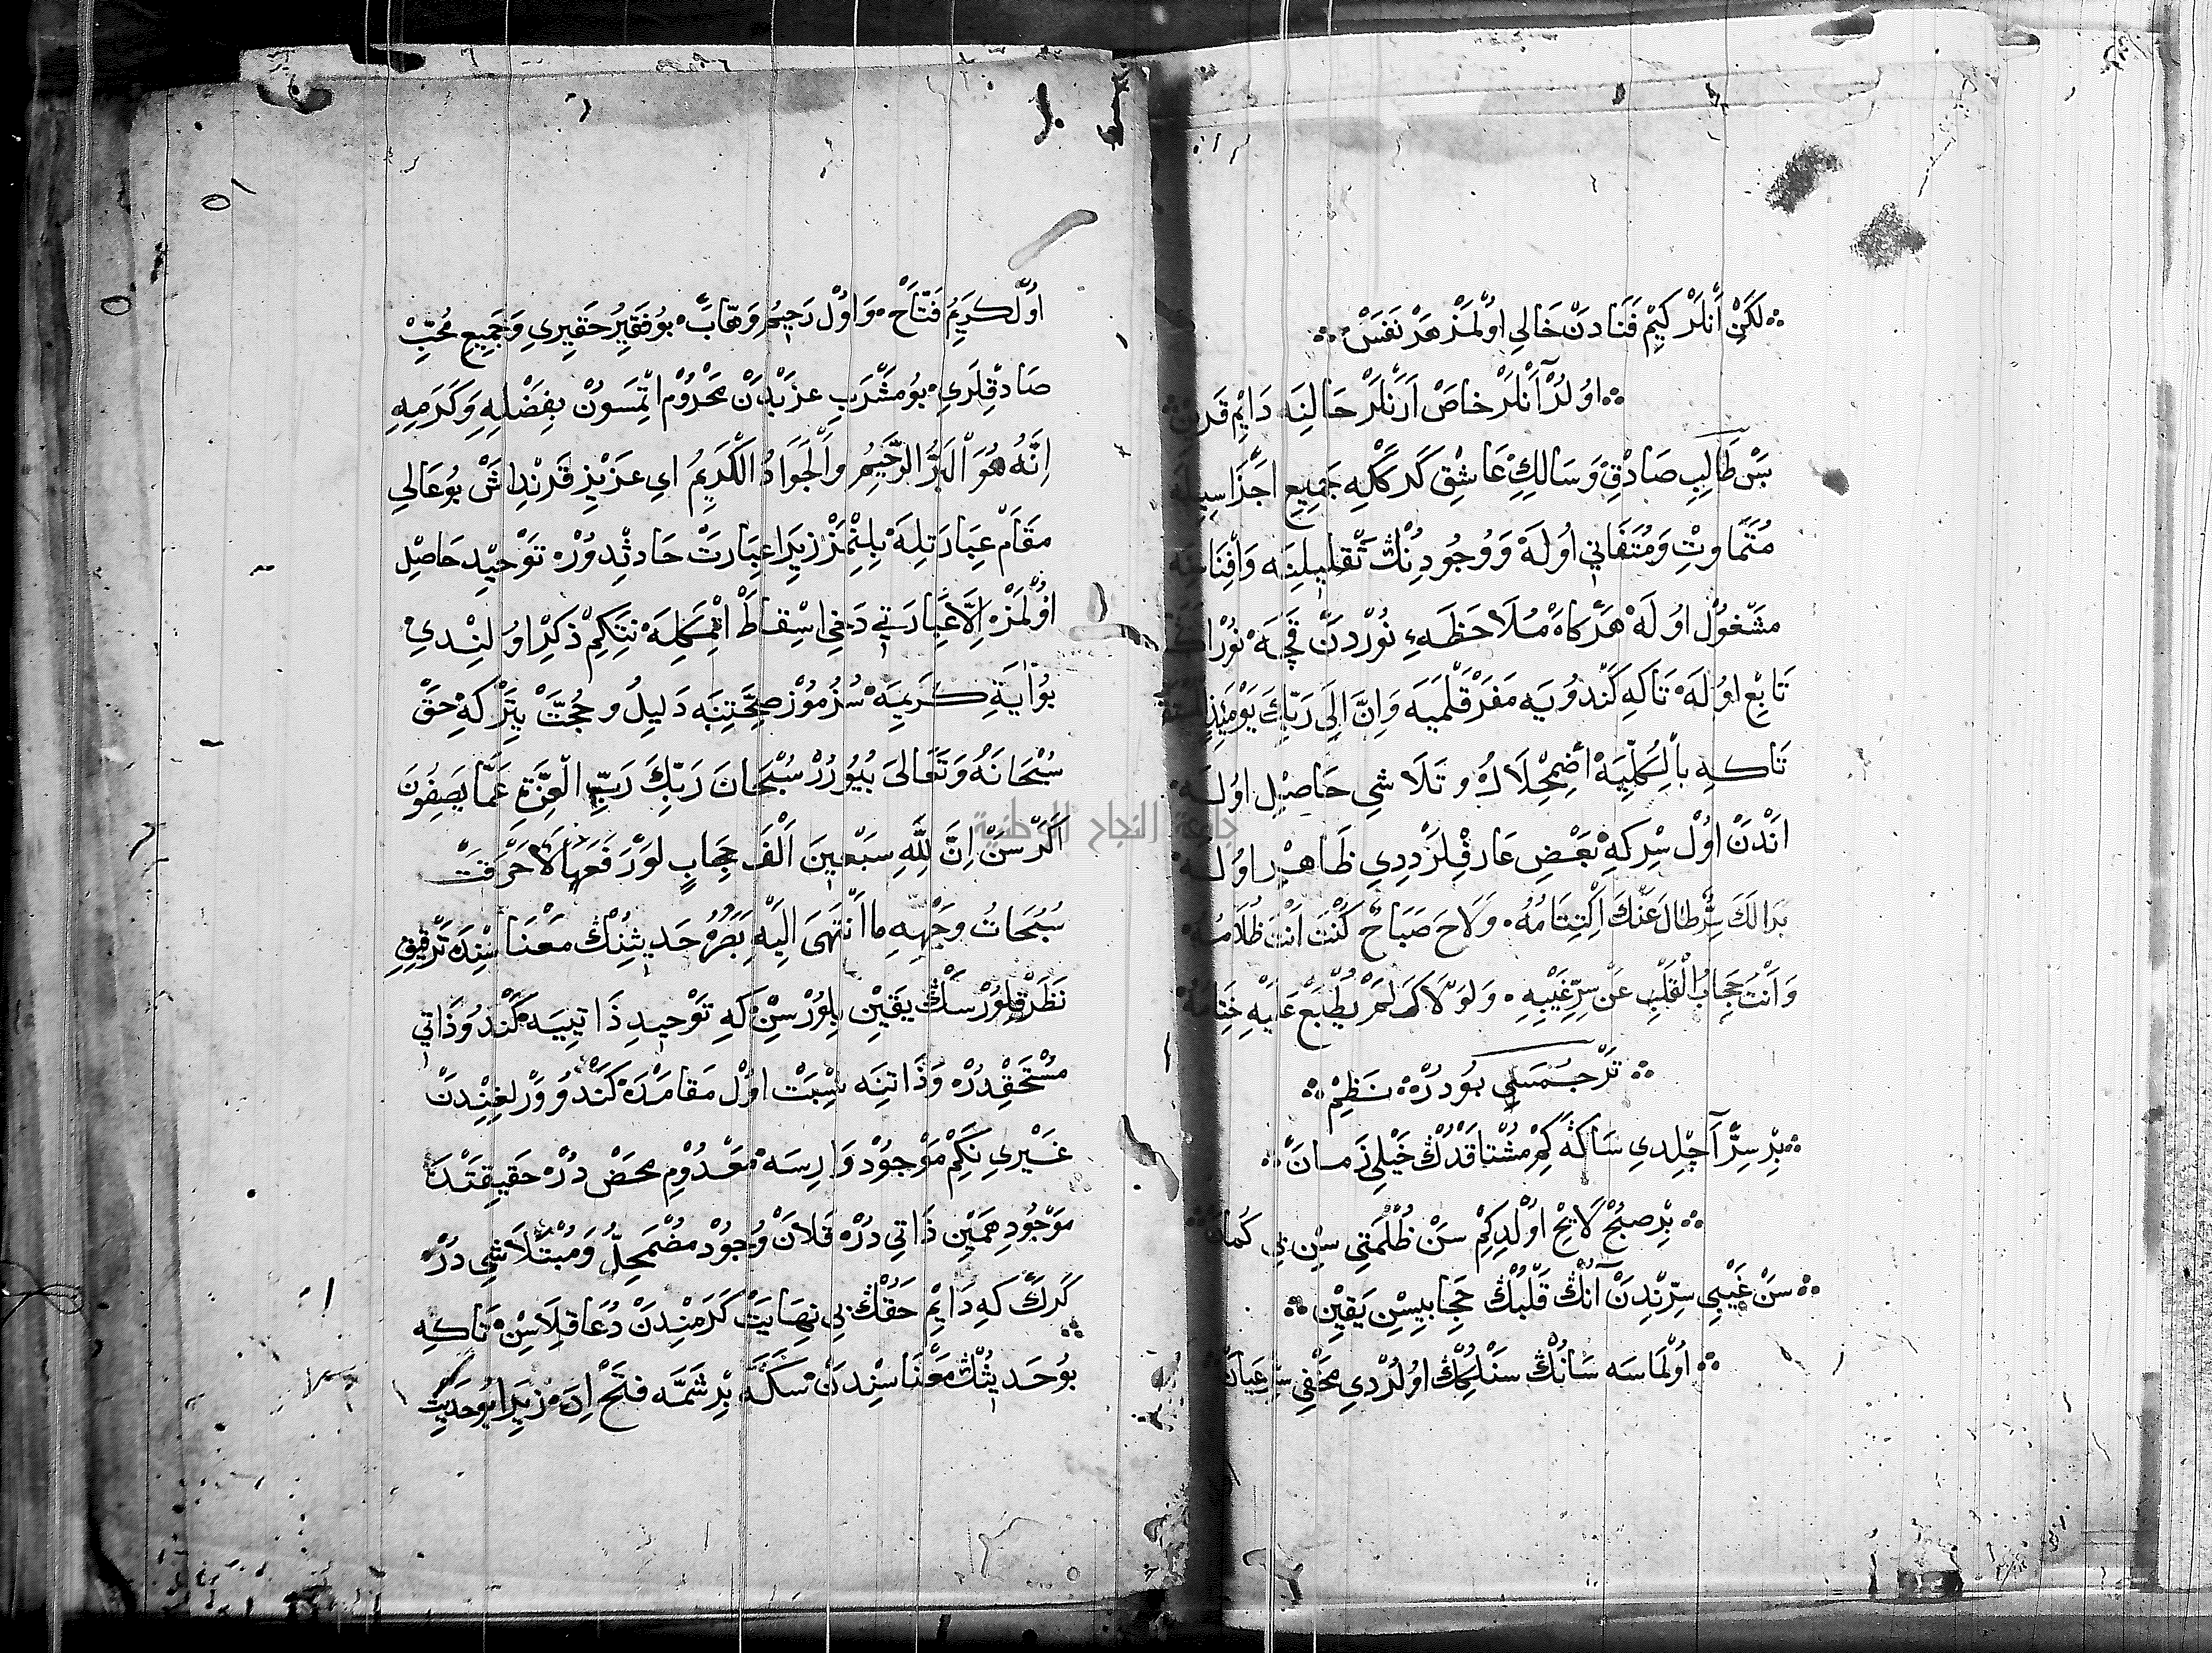 لَكِنْ أَنْلَرْ كِيمْ فَنَادَنْ خَالِي اوُلْمَزْ هَرْ نَفَسْ
اوُلُرْ آنْلَرْ خَاصْ اَرَنْلَرْ حَالِنَه دَايِمْ
بَسْ طَالِبِ صَادِقْ وَ سَالِكِ عَاشِقْ كَرَكْلِهِ جَمِيعِ
مُتَمَاوِتْ وَ مُتَفَانِي اوُلَهْ وَ وُجُودِنُكْ تَقْلِيلِنَه
مَشْغُولْ اوُلَهْ هَرْكَاهْ مُلَاحَظَهءِ نُورْدَنْ قَچَهْ
تَابِعْ اوُلَهْ تَاكَهِ كَنْدُويَه مَفَرْ قَلْمَيَه وَ اِنَّ اِلَى رَبِّكَ يَوْمَئِذٍ
تَاكَهِ بِالْكُلِّيَهْ اُضْمِحْلَالْ وَ تَلَاشِى حَاصِلْ اوُلَهْ
اَنْدَنْ اوُلْ سِرْ كِهْ بَعْضِ عَارِفْلَرْ دِدِي ظَاهِرْ اوُلَهْ
بَدَا لَكَ سِرٌّ طَالَ عَنْكَ اكْتِتَامُهُ ۰ وَ لَاحَ صَبَاحٌ كُنْتَ اَنْتَ ظَلَامُهُ
وَ اَنْتَ حِجَابُ الْقَلْبِ عَنْ سِرِّ غَيْبِهِ ۰ وَ لَوْلَاكَ لَمْ يُطْبَعْ عَلَيْهِ خِتَامُهُ
تَرْجُمَسِي بُودُرْ نَظِمْ
بِرْ سِرْ آچِلْدِي سَاكَهْ كِمْ مُشْتَاقْدُكْ خَيْلِي زَمَانْ
بِرْ صُبْحْ لَايِحْ اوُلْدِكِمْ سَنْ ظُلْمَتِي سِنْ بِي كُمَانْ
سَنْ غَيْبِي سِرِّنْدَنْ آنُكْ قَلْبُكْ حِجَابِيسِنْ يَقِينْ
اوُلْمَاسَه سَانُكْ سَنْلِكُكْ اوُلُرْدِي مَخْفِي سِرْ عَيَانْ
اوُلْ كَرِيمُ فَتَّاحْ وَ اوُلْ رَحِيمُ وَهَّابْ بُو فَقِيرُ حَقِيرِي وَ جَمِيعِ مُحِبِّ
صَادِقْلَرِي بُو مَشْرَبِ عَزْبْدَنْ مَحْرُومْ اِتْمَسُونْ بِفَضْلِهِ وَ كَرَمِهِ
اِنَّهُ هُوَ الْبَرُّ الرَّحِيمُ وَ الْجَوَادُ الْكَرِيمُ اي عَزِيزِ قَرِنْدَاشْ بُو عَالِي
مَقَامْ عِبَارَتِلَهْ بِلِنْمَزْ زِيرَا عِبَارَتْ حَادِثْدُورْ تَوْحِيدْ حَاصِلْ
اوُلْمَزْ اِلَّا عِبَارَتِي دَخِي اِسْقَاطْ اِتْمَكِلَهْ نِتَكِمْ ذِكِرْ اوُلِنْدِي
بُو اٰيَةِ كَرِيمَهْ سُزُمُوزْ صِحَّتِنَه دَلِيلْ و حُجَّتْ يِتَرْ كِهْ حَقْ
سُبْحَانَهُ وَ تَعَالَى بُيُورُرْ سُبْحَانَ رَبِّكَ رَبِّ الْعِزَّةِ عَمَّا يَصِفُونَ
اَكَرْ سَنْ اِنَّ لِلّٰهِ سَبْعِينَ اَلْفَ حِجَابٍ لَوْ رَفَعَهَا لَاَحْرَقَتْ
سُبُحَاتُ وَجْهِهِ مَا انْتَهَى اِلَيْهِ بَصَرُهُ حَدِيثِنُكْ مَعْنَاسِنْدَهْ تَرْقِيقِ
نَظَرْ قِلُورْسَكْ يَقِينْ بِلُورْسِنْ كَهِ تَوْحِيدِ ذَاتِييَه كَنْدُو ذَاتِي
مُسْتَحِقْدُرْ وَ ذَاتِنَه نِسْبَتْ اوُلْ مَقَامْدَهْ كَنْدُو وَرْلِغِنْدَنْ
غَيْرِي نَكِمْ مَوْجُودْ وَارِسَهْ مَعْدُومِ مَحَضْ دُرْ حَقِيقَتْدَهْ
مَوْجُودْ هَمِينْ ذَاتِي دُرْ قَلَانْ وُجُودْ مُضْمَحِلُّ وَ مُتَلَاشِي دُرْ
كَرَكْ كَهِ دَايِمْ حَقُّكْ بِي نِهَايَتْ كَرَمِنْدَنْ دُعَا قِلَاسِنْ تَاكَهِ
بُو حَدِيثُكْ مَعْنَاسِنْدَنْ سَكَهْ بِرْ شَمَّه فَتْحْ اِدَهْ زِيرَا بُو حَدِيثِ
جامعة النجاح الوطنية